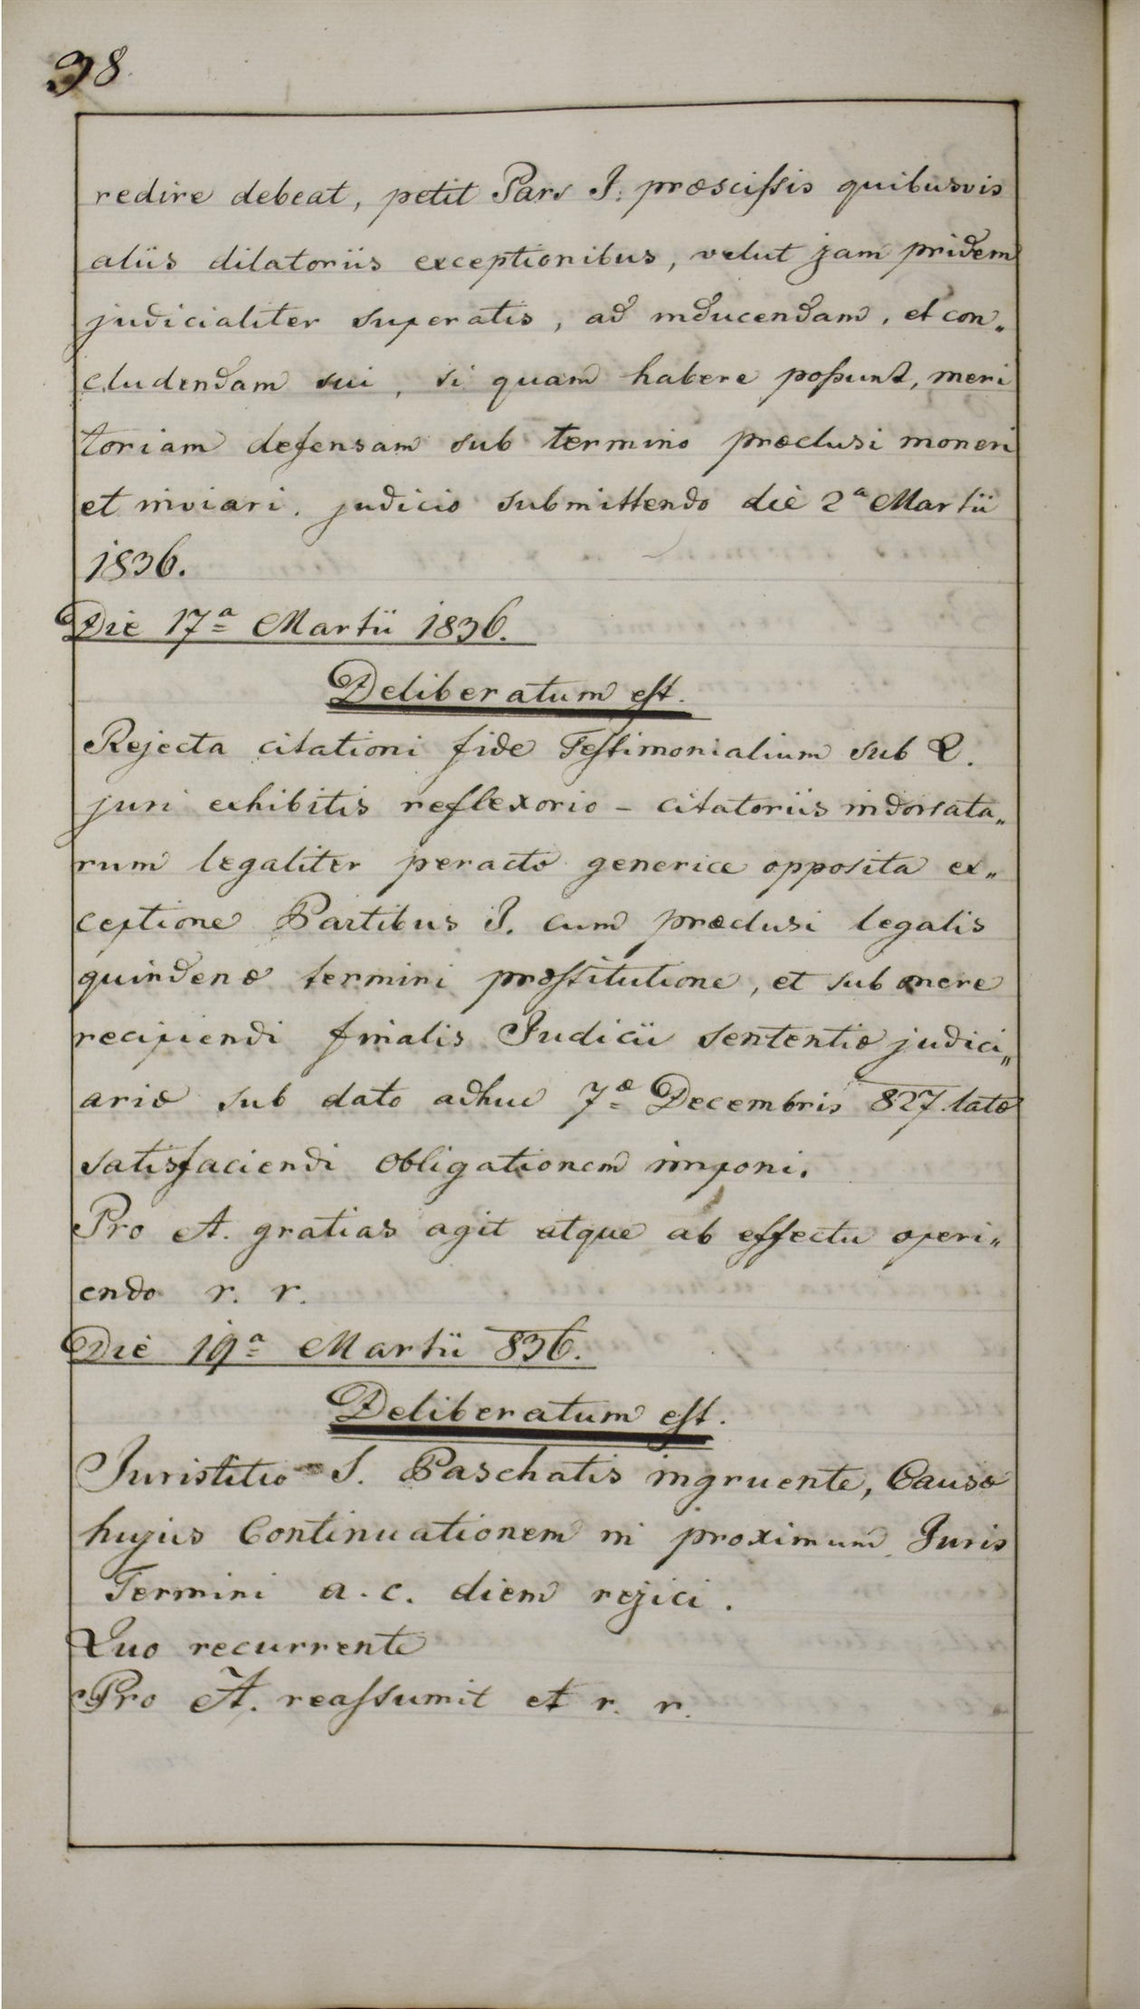 98
redire debeat, petit Pars I. præscissis quibusvis
aliis dilatoriis exceptionibus, velut jam pridem
judicialiter superatis, ad inducendam, et con„
cludendam sui, si quam habere possunt, meri
toriam defensam sub termino præclusi moneri
et inviari. judicio submittendo die 2a Martii
1836.
Die 17a Martii 1836.
Deliberatum est.
Rejecta citationi fide Testimonialium sub Q.
juri exhibitis reflexorio – citatoriis indorsata„
rum legaliter peracto generice opposita ex„
ceptione Partibus I. cum præclusi legalis
quindenæ termini præstitutione, et sub onere
recipiendi finalis Judicii sententiæ judici„
ariæ sub dato adhuc 7æ Decembris 827. latæ
satisfaciendi obligationem imponi.
Pro A. gratias agit atque ab effectu operi„
endo r. r.
Die 19a Martii 836.
Deliberatum est.
Juristitio S. Paschatis ingruente, Causæ
hujus Continuationem in proximum Juris
Termini a. c. diem rejici.
Quo recurrente
Pro A. reassumit et r. r.